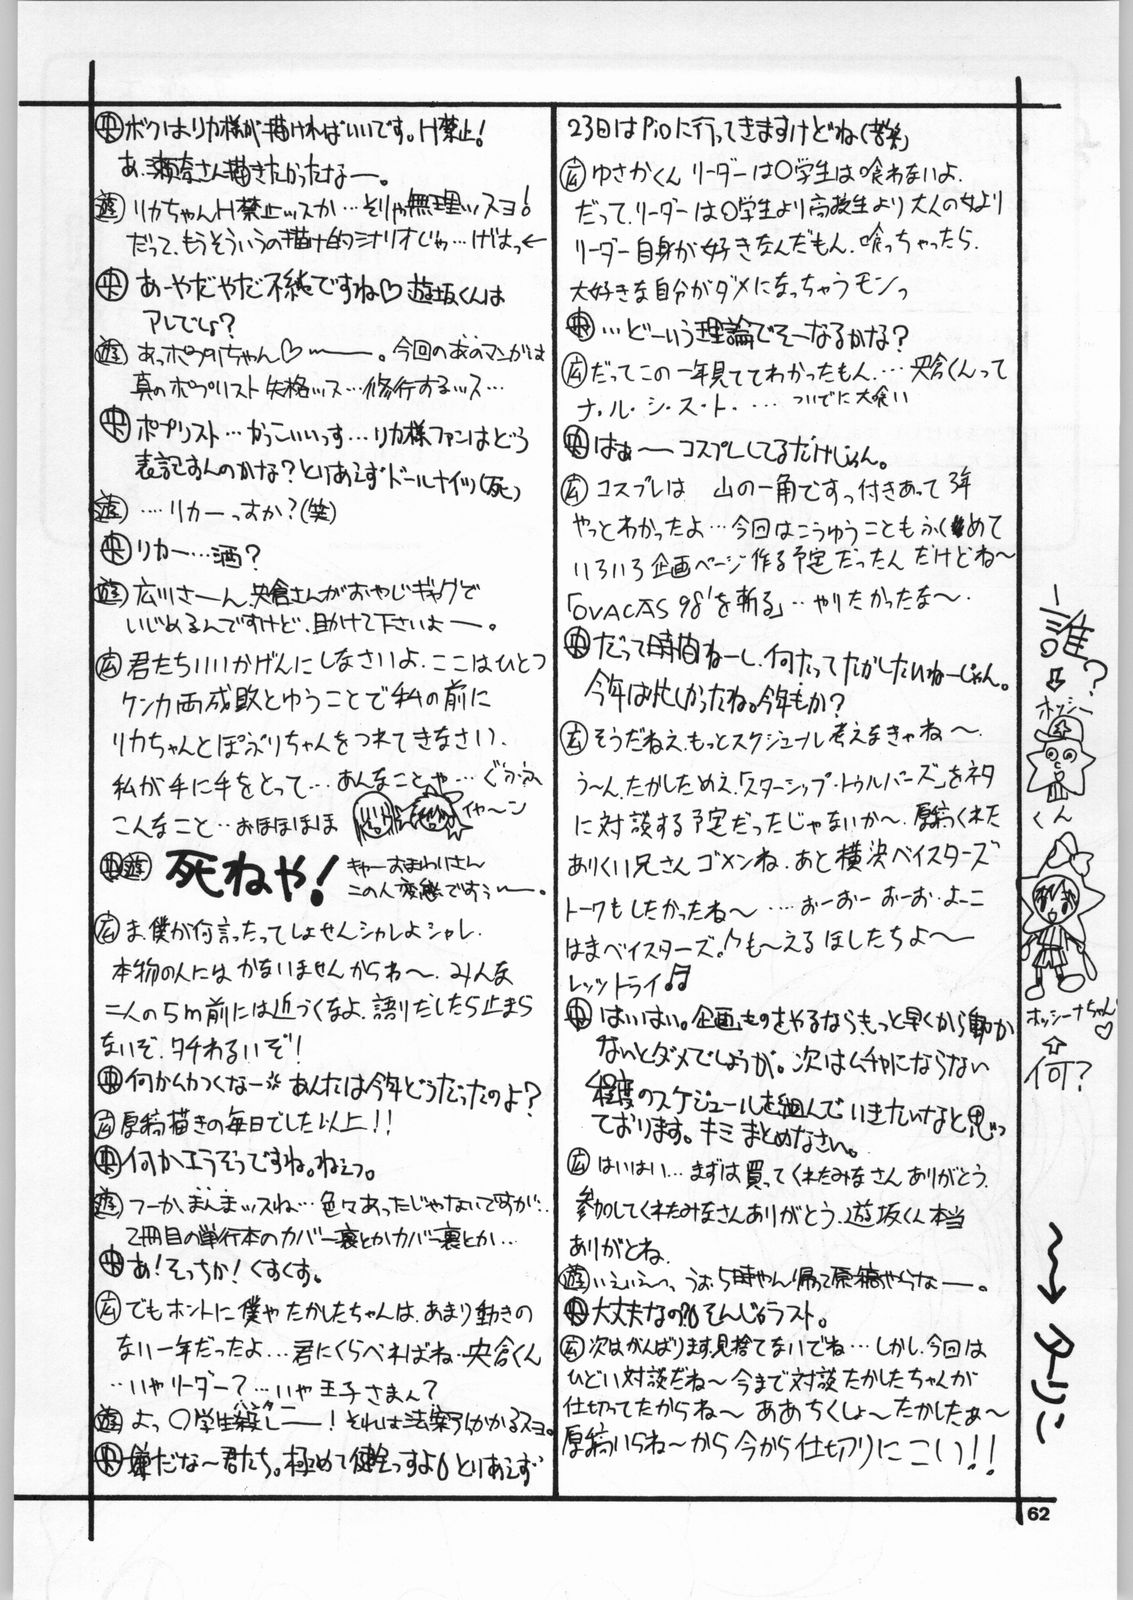 央 ボクはリカ様が描ければいいです。H禁止!
あ、瀬奈さん描きたかったなー。
遊 リカちゃんH禁止ッスか…そりゃ無理ッスヨ!
だって、もうそういうの描け的シナリオじゃ…げはっ←
央 あーやだやだ不純ですね♡遊坂くんは
アレでしょ?
遊 あっポプリちゃん♡〜ー。今回のあのマンガは
真のポプリスト失格ッス…修行するッス…
央 ポプリスト…かっこいいっす…リカ様ファンはどう
表記すんのかな?とりあえずドールナイツ(死)
遊 ‥‥リカーっすか?(笑)
央 リカー…酒?
遊 広川さーん、央倉さんがおやじギャグで
いじめるんですけど、助けて下さいよー。
広 君たちいいかげんにしなさいよ、ここはひとつ
ケンカ両成敗とゆうことで私の前に
リカちゃんとぽぷりちゃんをつれてきなさい、
私が手に手をとって…あんなことや…ぐふふ
こんなこと…おほほほほ
イヤ〜ン
央遊 死ねや!
キャーおまわりさん
この人変態ですぅー。
広 ま、僕が何言ったってしょせんシャレよシャレ、
本物の人にはかないませんからね〜、みんな
二人の5m前には近づくなよ、語りだしたら止まら
ないぞ、タチわるいぞ!
央 何かムカつくなー あんたは今年どうだったのよ?
広 原稿描きの毎日でした以上!!
央 何かエラそうですね。ねぇっ。
遊 つーか、まんまッスね…色々あったじゃないですか‥
2冊目の単行本のカバー裏とかカバー裏とか…
央 あ!そっちか!くすくす。
広 でもホントに僕やたかしたちゃんは、あまり動きの
ない一年だったよ…君にくらべればね‥央倉くん
‥いやリーダー?…いや王子さまぁ?
遊 よっ〇学生殺しー!それは法案ひっかかるスよ。
ハンター
央 嫌だな〜君たち。極めて健全っすよ とりあえず
23日はPioに行ってきますけどね(苦笑)
広 ゆさかくん リーダーは〇学生は喰わないよ、
だって、リーダーは〇学生より高校生より大人の女より
リーダー自身が好きなんだもん、喰っちゃったら、
大好きな自分がダメになっちゃうモンっ
央 …どーいう理論でそーなるかな?
広 だってこの一年見ててわかったもん…、央倉くんって
ナ・ル・シ・ス・ト・… ついでに大喰い
央 はぁ〜ー コスプレしてるだけじゃん。
広 コスプレは 山の一角ですっ付きあって3年
やっとわかったよ…今回はこうゆうこともふくめて
いろいろ企画ページ作る予定だったんだけどね〜
「OVACAS 98'を斬る」‥やりたかったな〜、
央 だって時間ねーし、何たってたかしたいねーじゃん。
今年は忙しかったね。今年もか?
広 そうだねえ、もっとスケジュール考えなきゃね〜、
う〜ん、たかしためえ、「スターシップ・トゥルパーズ」をネタ
に対談する予定だったじゃないか〜、原稿くれた
ありくい兄さん ゴメンね、あと横浜ベイスターズ
トークもしたかったね〜 …おーおー おーお・よーこ
はまベイスターズ♪も〜える ほしたちよ〜ー
レッツトライ♬
央 はいはい。企画ものをやるなら、もっと早くから動か
ないとダメでしょうが。次はムチャにならない
程度のスケジュールを組んでいきたいなと思っ
ております。キミまとめなさい。
広 はいはい…まずは買ってくれたみなさんありがとう、
参加してくれたみなさんありがとう、遊坂くん本当
ありがとね、
遊 いえいえ〜っ うお、5時やん!帰って原稿やらなー。
央 大丈夫なの? そんじゃラスト。
広 次はがんばります、見捨てないでね…しかし、今回は
ひどい対談だね〜今まで対談たかしたちゃんが
仕切ってたからね〜 ああちくしょ〜たかしたぁ〜
原稿いらね〜から 今から仕切りにこい!!
誰?
ホッシーくん
ホッシーナちゃん♡
何?
〜→ターリン
62